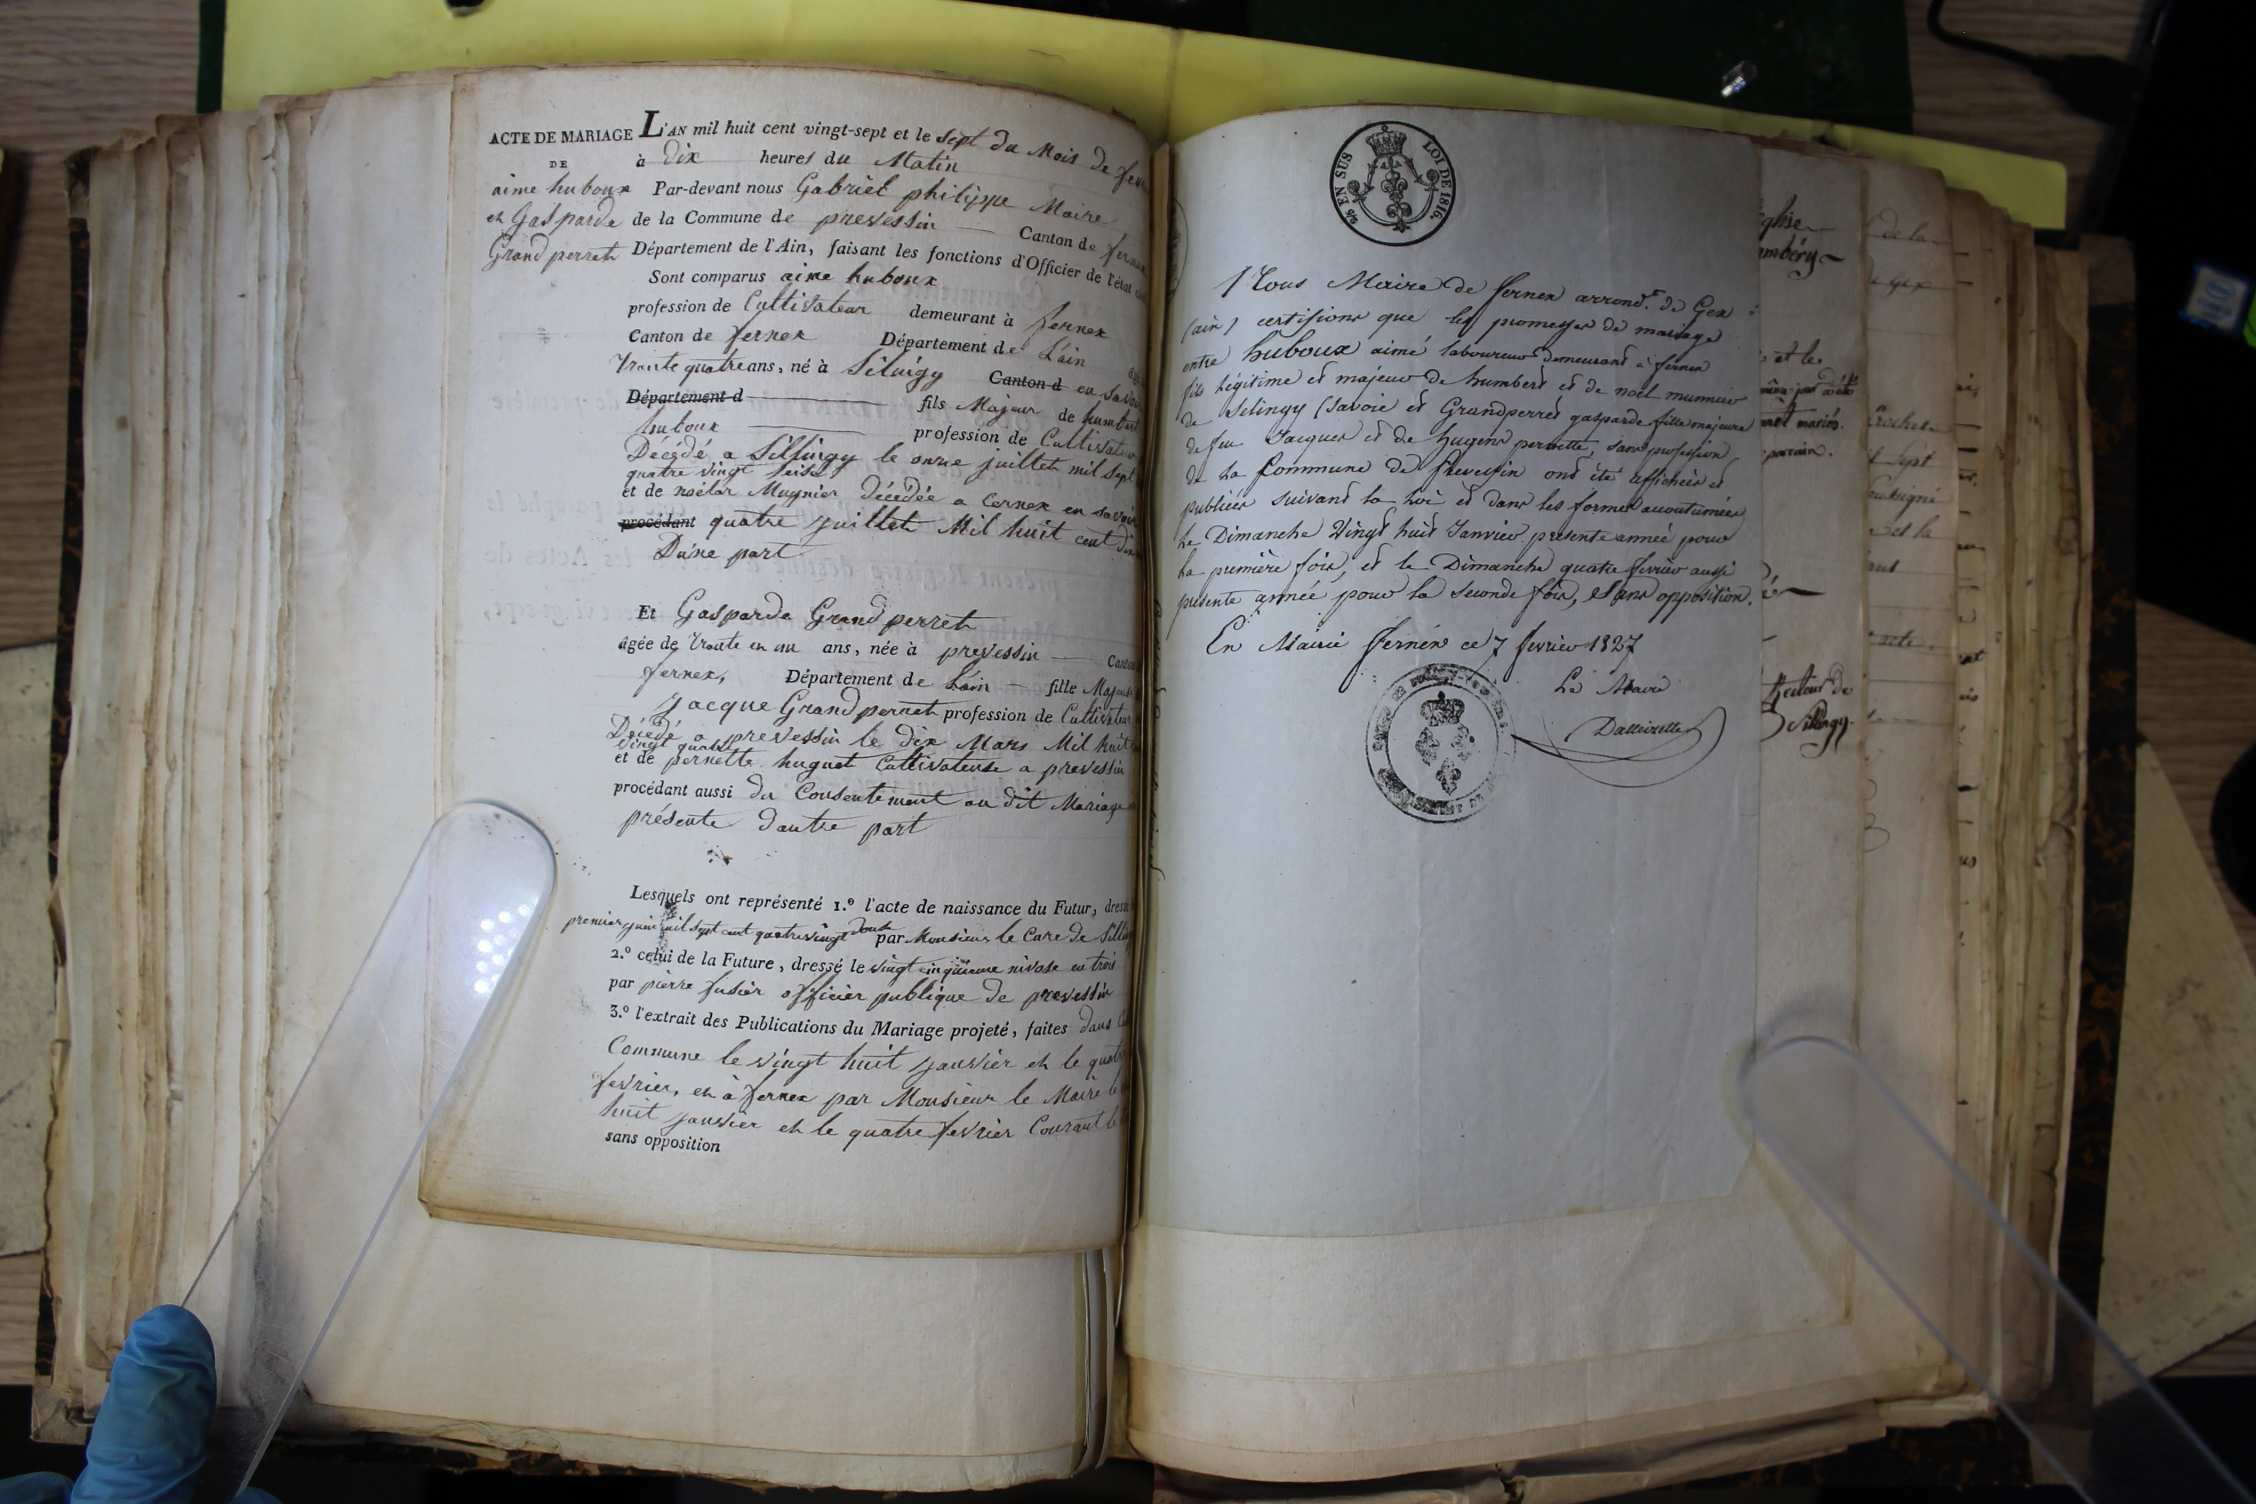 ACTE DE MARIAGE
DE
aime huboux
et Gasparde
Grand perret
L'AN mil huit cent vingt-sept et le sept du Mois de fev
à dix heures du Matin
Par-devant nous Gabriel philippe Maire
de la Commune de prevessin Canton de fernex
Département de l'Ain, faisant les fonctions d'Officier de l'état
Sont comparus aime huboux
profession de Cultivateur demeurant à fernex
Canton de fernex Département de L'ain
trante quatre ans, né à Silingy Canton d en savoie
Département d fils Majeur de humbert
huboux profession de Cultivateur
Décédé a Sillingy le onze juillet mil sept
quatre vingt seise
et de noëlar Mugnier décédée a Cernex en savoie
procédant quatre juillet Mil huit cent
Dune part
Et Gasparde Grand perret
âgée de trante en un ans, née à prevessin Canton
fernex, Département de L'ain fille Majeure
Jacque Grand perret profession de Cultivateur
Décédé a prevessin le dix Mars Mil huit
vingt quatre
et de pernette huguet Cultivateuse a prevessin
procédant aussi du Consentement au dit Mariage
présente dautre part
Lesquels ont représenté 1.º l'acte de naissance du Futur, dressé
premier juin mil sept cent quatrevingt douze par Monsieur le Cure de Silling
2.º celui de la Future, dressé le vingt cinquieme nivose en trois
par pierre fusier officier publique de prevessin
3.º l'extrait des Publications du Mariage projeté, faites dans
Commune le vingt huit janvier et le quatre
fevrier, et à fernex par Monsieur le Maire le
huit janvier et le quatre fevrier Courant
sans opposition
25 EN SUS LOI DE 1816.
Nous Maire de fernex arrond.t de Gex
(ain) certifions que les promesses de mariage
entre huboux aimé laboureur demeurant à fernex
fils légitime et majeur de humbert et de noël munnier
de Silingy (Savoie et Grandperret gasparde fille majeure
de feu Jacques et de hugens pernette, sans profession
de la Commune de Prevessin ont été affichées et
publiées suivant la loi et dans les formes accoutumées
le Dimanche Vingt huit Janvier presente année pour
la première fois, et le Dimanche quatre fevrier aussi
presente année pour la seconde fois, sans opposition.
En Mairie fernex ce 7 fevrier 1827
Le Maire
glise
ambéry
et le
mariés.
parrain.
Recteur de
Silingy.
de la
de Gex
sept
soussigné
et la